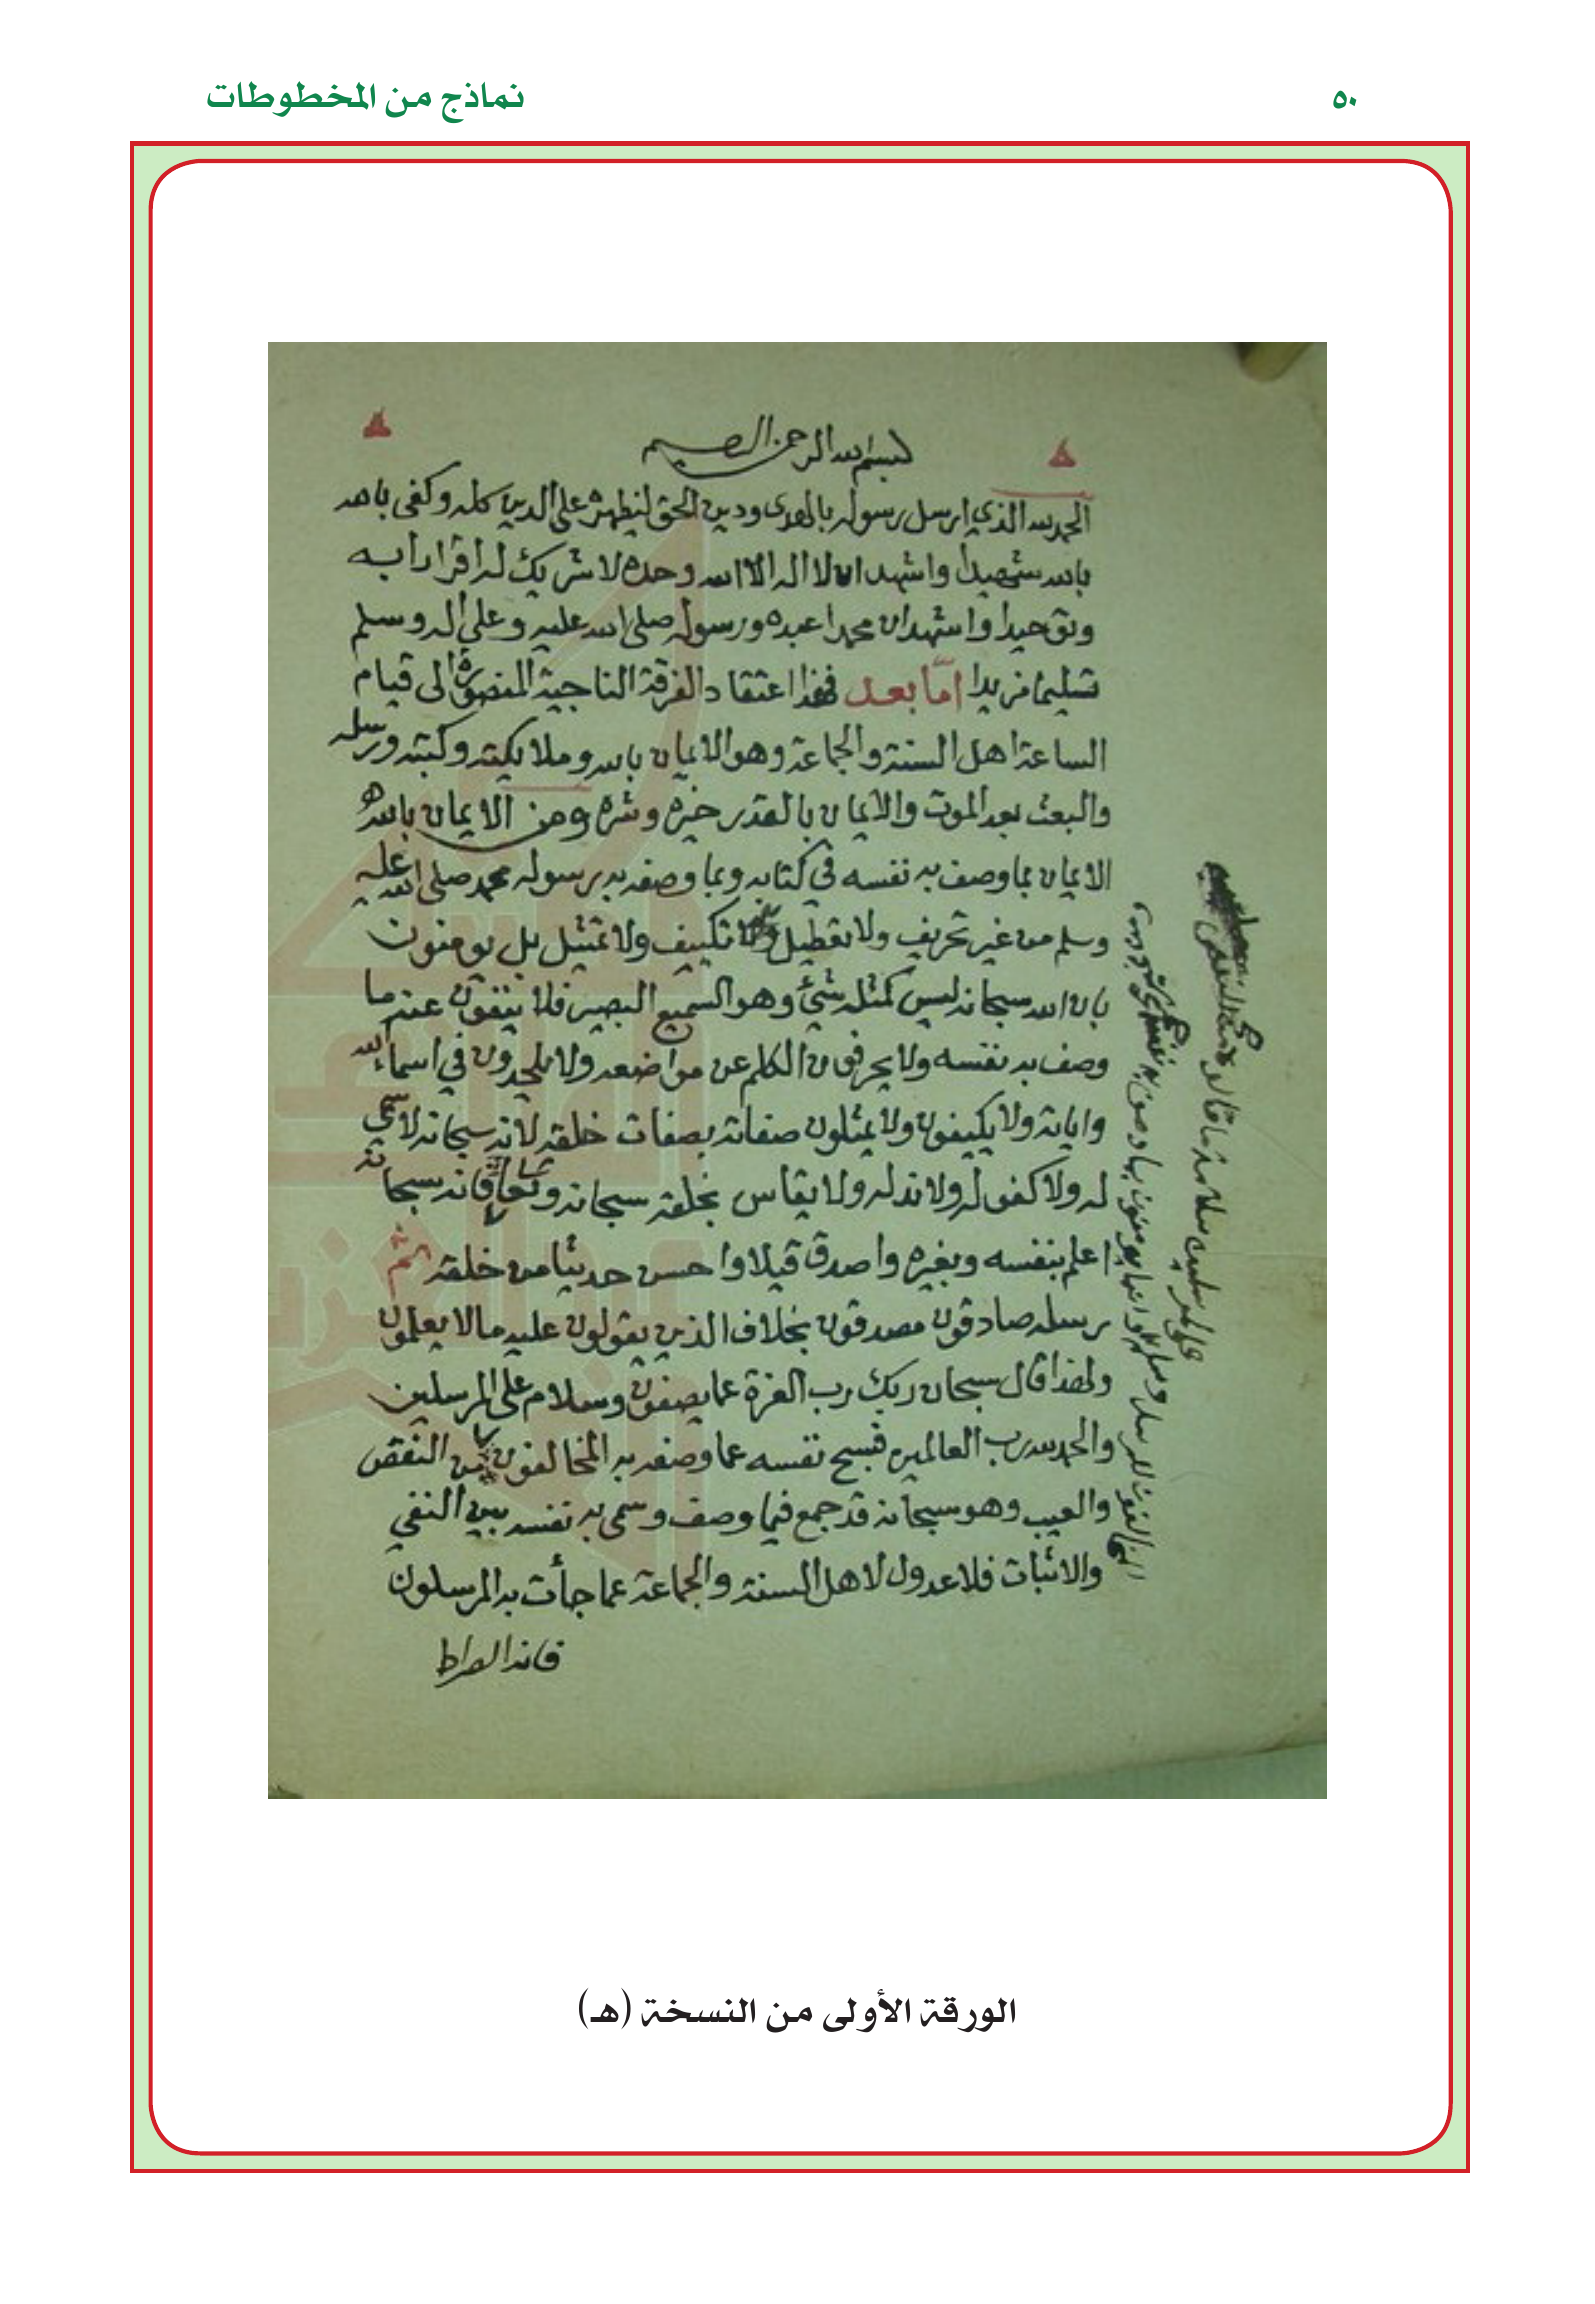 ٥٠
نماذج من المخطوطات
بسم الله الرحمن الرحيم
الحمد لله الذي ارسل رسوله بالهدى ودين الحق ليظهره على الدين كله وكفى بالله
بالله شهيدا واشهد ان لا اله الا الله وحده لا شريك له اقرارا به
وتوحيدا واشهد ان محمدا عبده ورسوله صلى الله عليه وعلى اله وسلم
تسليما مزيدا امّا بعد فهذا اعتقاد الفرقة الناجية المنصورة الى قيام
الساعة اهل السنة والجماعة وهو الايمان بالله وملائكته وكتبه ورسله
والبعث بعد الموت والايمان بالقدر خيره وشره ومن الايمان بالله
الايمان بما وصف به نفسه في كتابه وبما وصفه به رسوله محمد صلى الله عليه
وسلم من غير تحريف ولا تعطيل ولا تكييف ولا تمثيل بل يومنون
بان الله سبحانه ليس كمثله شيء وهو السميع البصير فلا ينفون عنه ما
وصف به نفسه ولا يحرفون الكلم عن مواضعه ولا يلحدون في اسماء الله
واياته ولا يكيفون ولا يمثلون صفاته بصفات خلقه لانه سبحانه لا سمي
له ولا كفو له ولا ند له ولا يقاس بخلقه سبحانه وتعالى فانه سبحانه
اعلم بنفسه وبغيره واصدق قيلا واحسن حديثا من خلقه ثم
رسله صادقون مصدقون بخلاف الذين يقولون عليه مالا يعلمون
ولهذا قال سبحان ربك رب العزة عما يصفون وسلام على المرسلين
والحمد لله رب العالمين فسبح نفسه عما وصفه به المخالفون من النقص
والعيب وهو سبحانه قد جمع فيما وصف وسمى به نفسه بين النفي
والاثبات فلا عدول لاهل السنة والجماعة عما جأت به المرسلون
فانه الصراط
على المرسلين سلامة ما قالوه من النقص
الورقة الأولى من النسخة (هـ)